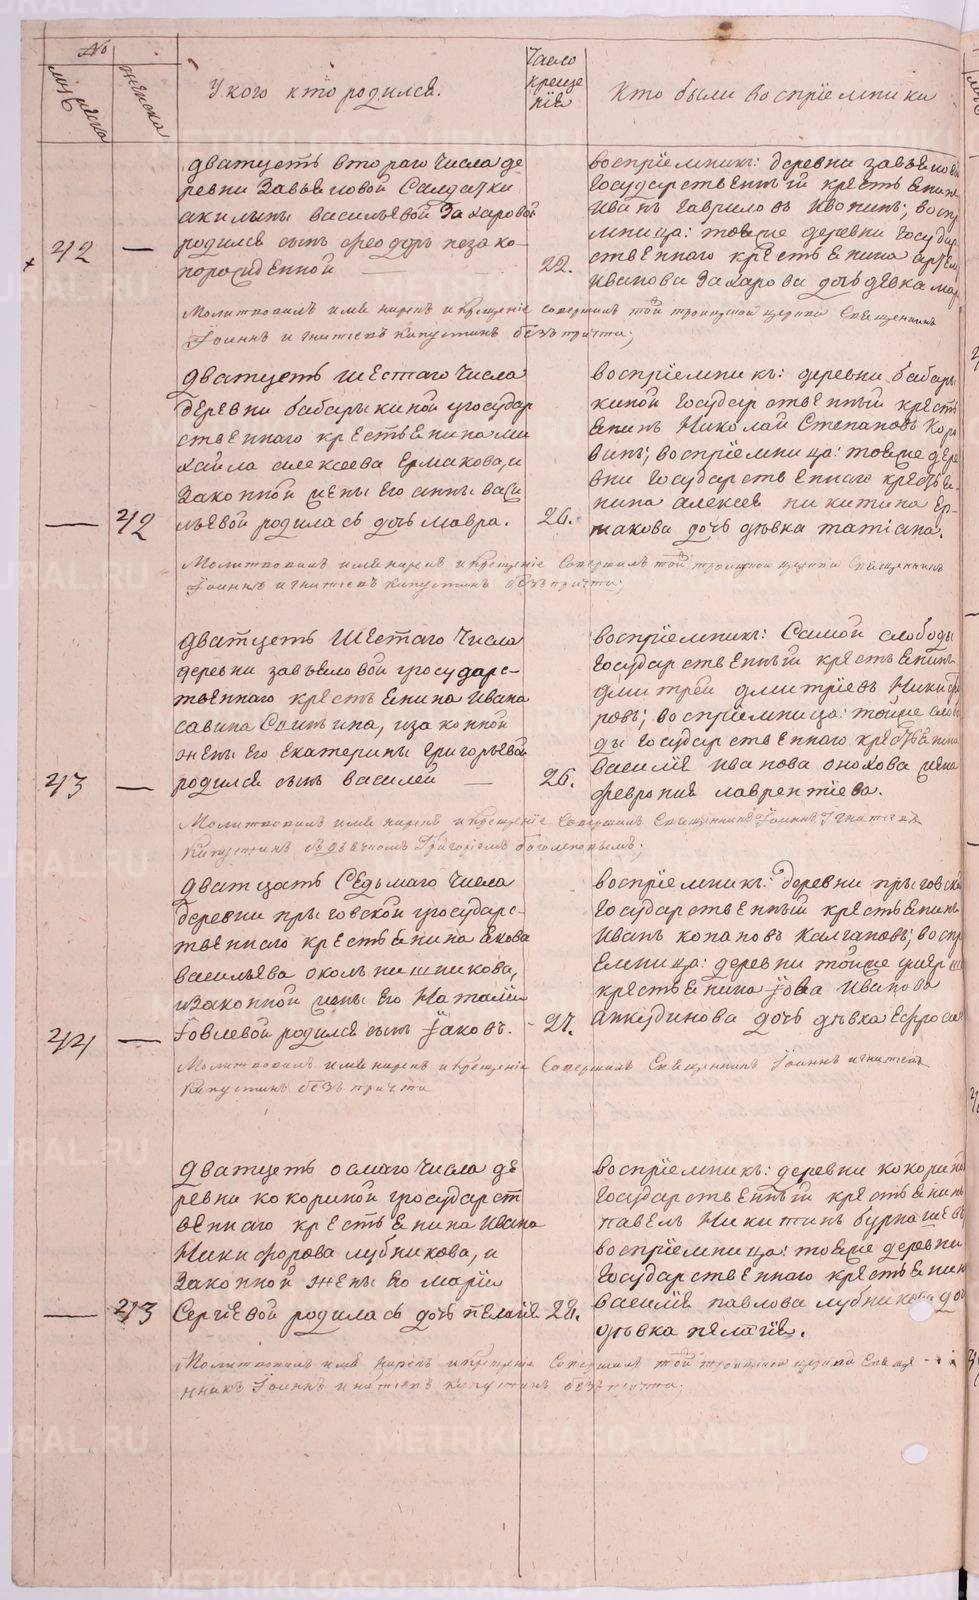 №
мужеска
женска
У кого кто родился.
Число
креще
нія
Кто были воспріемники
дватцеть втораго числа де
ревни Завьяловой Салдатки
акилины васильевой Захаровой
42 — родился сынъ феодоръ незако-
норожденной 22.
воспріемникъ: деревни завьялово
государственный крестьянинъ
Иванъ Гавриловъ Ивонинъ; воспр
мница: тойже деревни государ
ственнаго крестьянина
Иванова Захарова дочь девка мар
Молитвовалъ имя нарекъ и крещеніе совершилъ той троицкой церкви Священникъ
Іоаннъ игнатіевъ Капустинъ безъ причта;
дватцеть шестаго числа
деревни бабарыкиной у государ
ственнаго крестьянина ми
хаила алексеева Ермакова, и
законной жены его анны васи
— 42 льевой родилась дочь мавра. 26.
воспріемникъ: деревни бабары
киной государственный кресть
янинъ Николай Степановъ Коро
винъ; воспріемница: тойже дере
вни государственнаго крестья-
нина алексея никитина Ер-
макова дочь девка татіана.
Молитвовалъ имя нарекъ и крещеніе совершилъ той троицкой церкви Священникъ
Іоаннъ игнатіевъ Капустинъ безъ причта;
дватцеть шестаго числа
деревни завьяловой у государс-
твеннаго крестьянина Ивана
савина Спицина, и законной
жены его екатерины григорьевой
43 — родился сынъ василеи — 26.
воспріемникъ: Самой слободы
государственный крестьянинъ
дмитрей дмитріевъ Никифо
ровъ; воспріемница: тойже слобо
ды государственнаго крестьянина
василія иванова онохова жена
феврония лаврентіева.
Молитвовалъ имя нарекъ и крещеніе совершилъ Священникъ Іоаннъ Игнатіевъ
Капустинъ съ дьячкомъ Григоріемъ боголеповымъ;
дватцать седьмаго числа
деревни прыговской у государс-
твеннаго крестьянина якова
васильева окольнишникова,
и законной жены его Наталіи
44 — Іовлевой родился сынъ Іаковъ. - 27.
воспріемникъ: деревни прыговско
государственный крестьянинъ
Иванъ конановъ калгановъ; воспр
емница: деревни тойже
крестьянина Іова Иванова
анкудинова дочь девка Ефросин
Молитвовалъ имя нарекъ и крещеніе совершилъ Священникъ Іоаннъ игнатіевъ
Капустинъ безъ причта
дватцеть осмаго числа де
ревни кокориной у государст
веннаго крестьянина Ивана
Никифорова лубникова, и
законной жены его маріи
— 43 Сергіевой родилась дочь пелагія 28.
воспріемникъ: деревни кокорино
государственный крестьянинъ
павелъ Никитинъ бурнашевъ
воспріемница: тойже деревни
государственнаго крестьянин
василія павлова лубникова до
девка пелагія.
Молитвовалъ имя нарекъ и крещеніе совершилъ той троицкой церкви Свяще-
нникъ Іоаннъ игнатіевъ капустинъ безъ причта;
METRIKI.GASO-URAL.RU